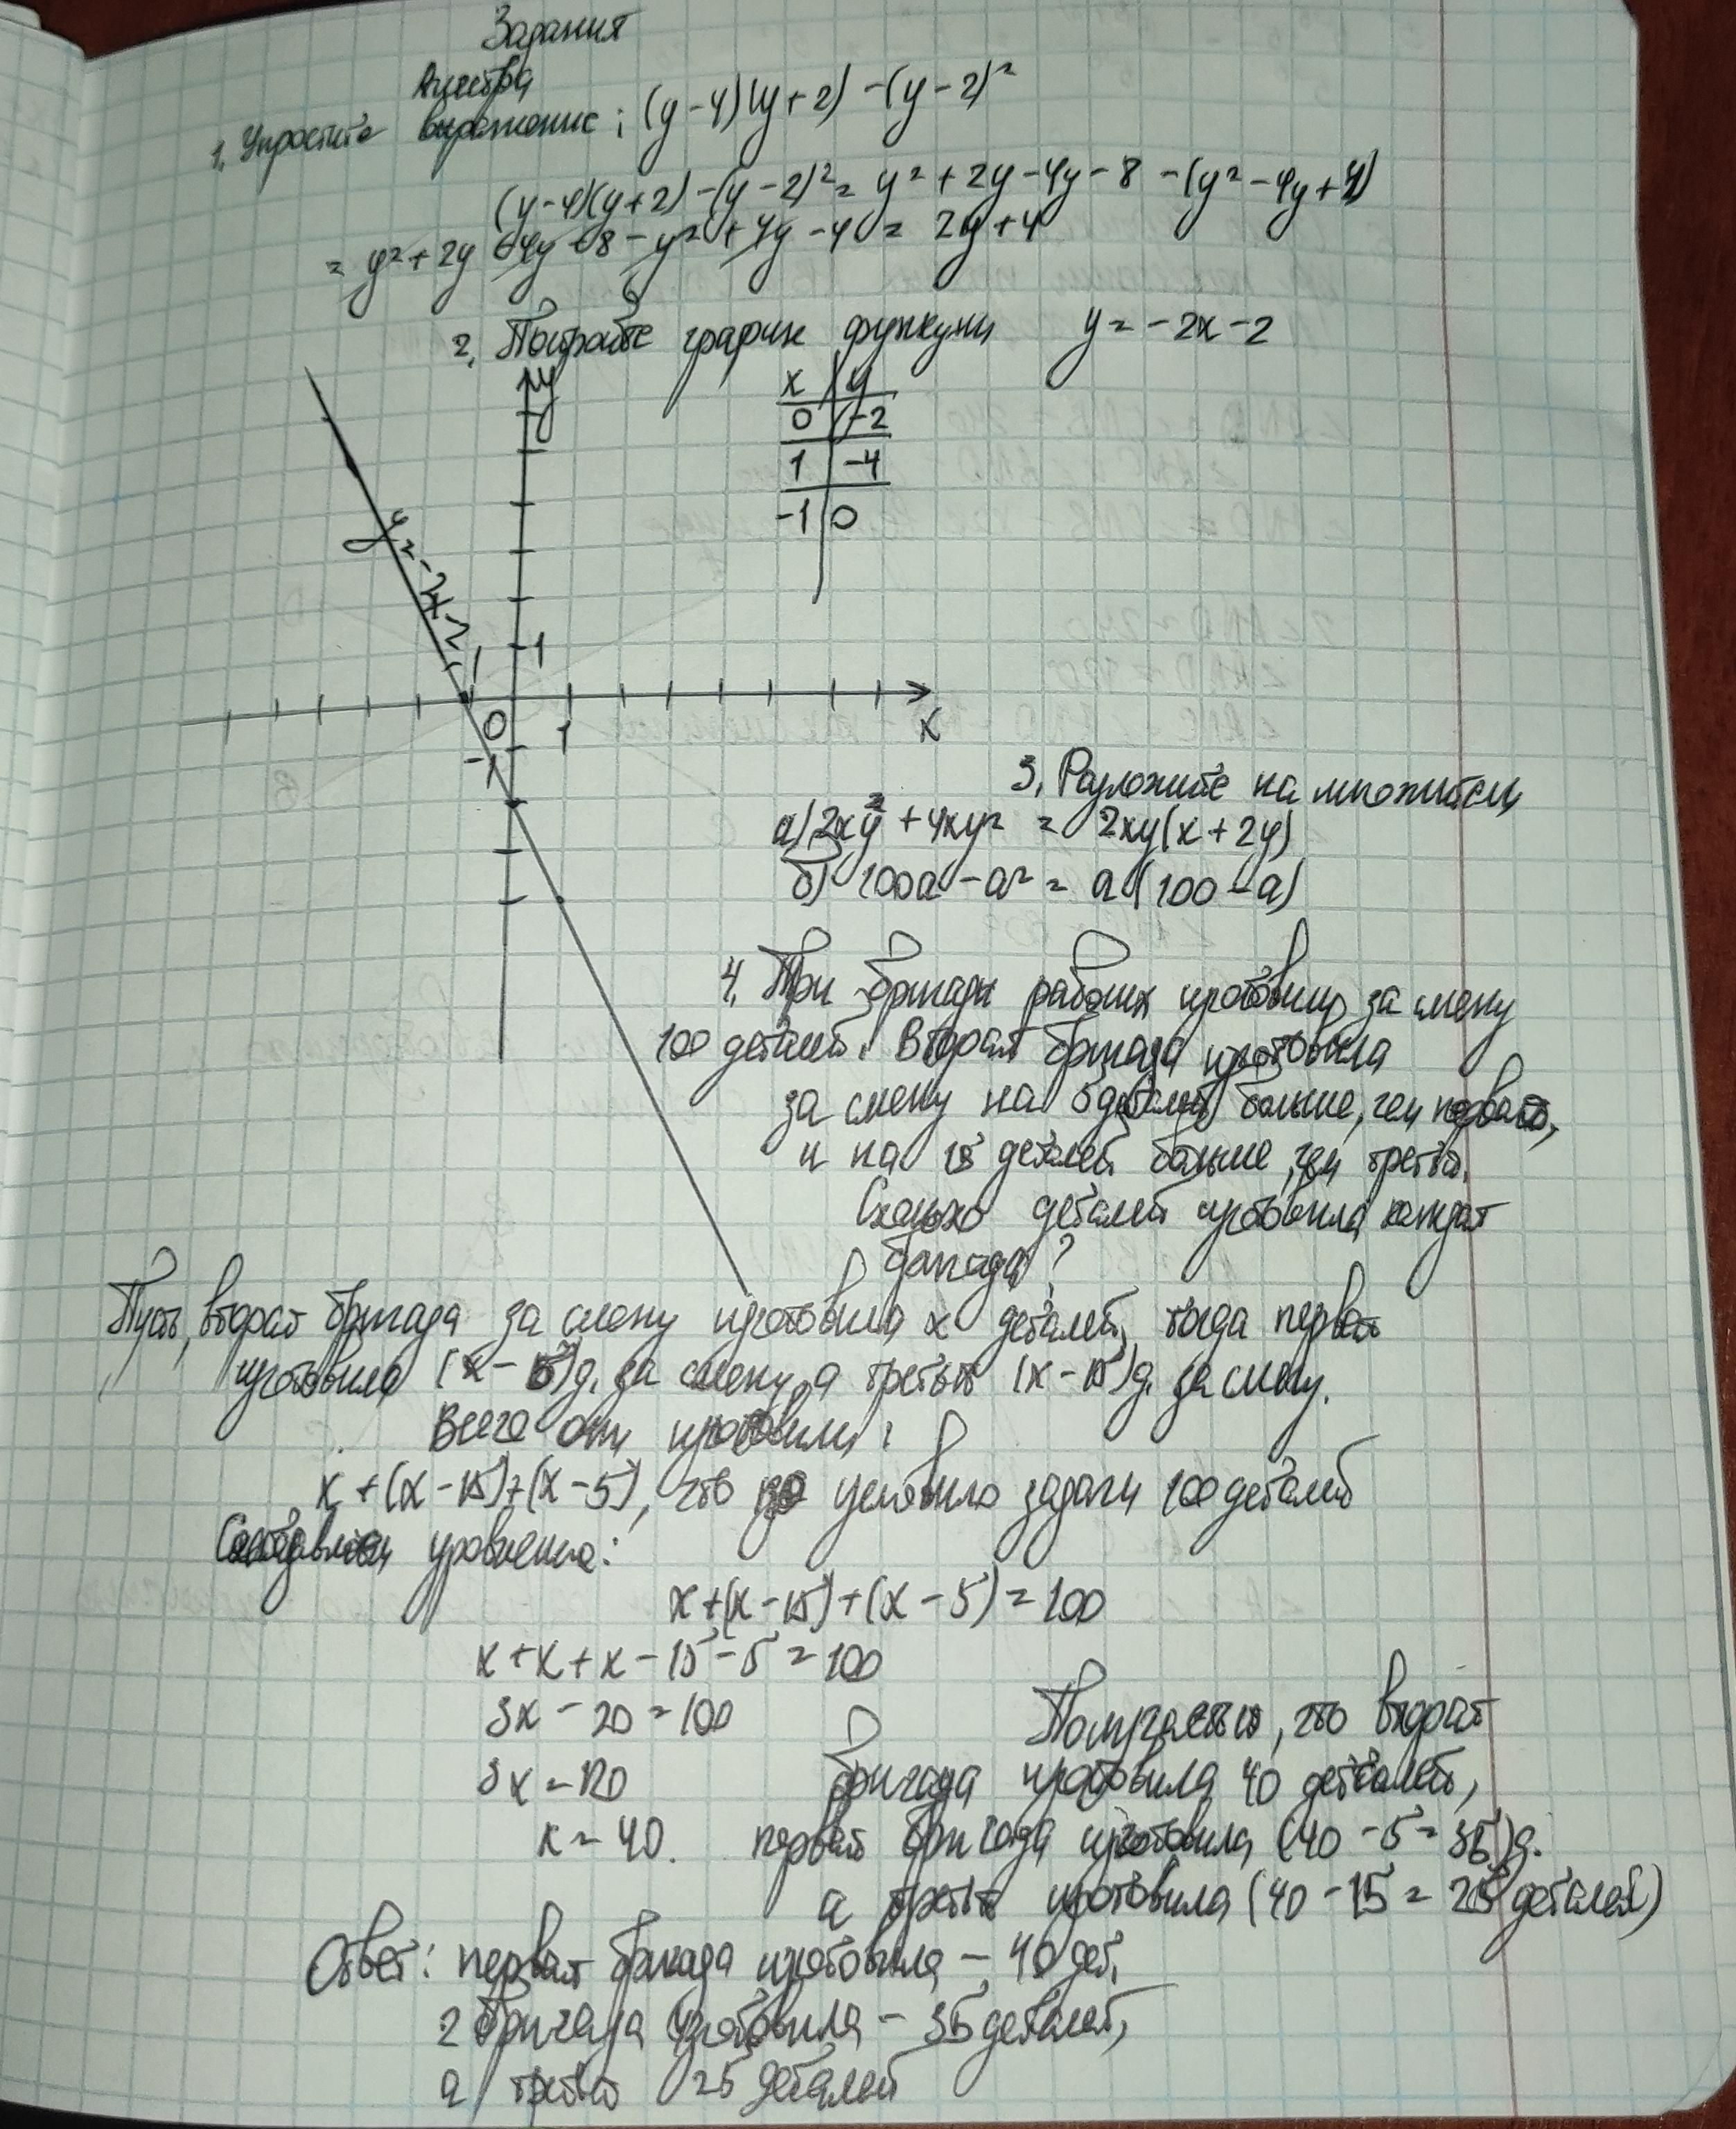 Задания
Алгебра
1. Упростите выражение: (y-4)(y+2)-(y-2)²
(y-4)(y+2)-(y-2)²= y²+2y-4y-8-(y²-4y+4)
= y²+2y-4y+8-y²+4y-4= 2y+4
2. Постройте график функции y=-2x-2
y
x y
0 -2
1 -4
-1 0
y=-2x-2
1
0 1 x
-1
3. Разложите на множители
а) 2x²y+4xy² = 2xy(x+2y)
б) 100a-a² = a(100-a)
4. Три бригады рабочих изготовили за смену
100 деталей. Вторая бригада изготовила
за смену на 5 деталей больше, чем первая,
и на 15 деталей больше, чем третья.
Сколько деталей изготовила каждая
бригада?
Пусть, вторая бригада за смену изготовила x деталей, тогда первая
изготовила (x-5)д. за смену, а третья (x-15)д. за смену.
Всего они изготовили:
x+(x-15)+(x-5), что по условию задачи 100 деталей
Составляем уравнение:
x+(x-15)+(x-5)=100
x+x+x-15-5=100
3x-20=100
3x=120
x=40.
Получается, что вторая
бригада изготовила 40 деталей,
первая бригада изготовила (40-5=35)д.
а третья изготовила (40-15=25 деталей)
Ответ: первая бригада изготовила - 40 дет,
2 бригада изготовила - 35 деталей,
а третья 25 деталей